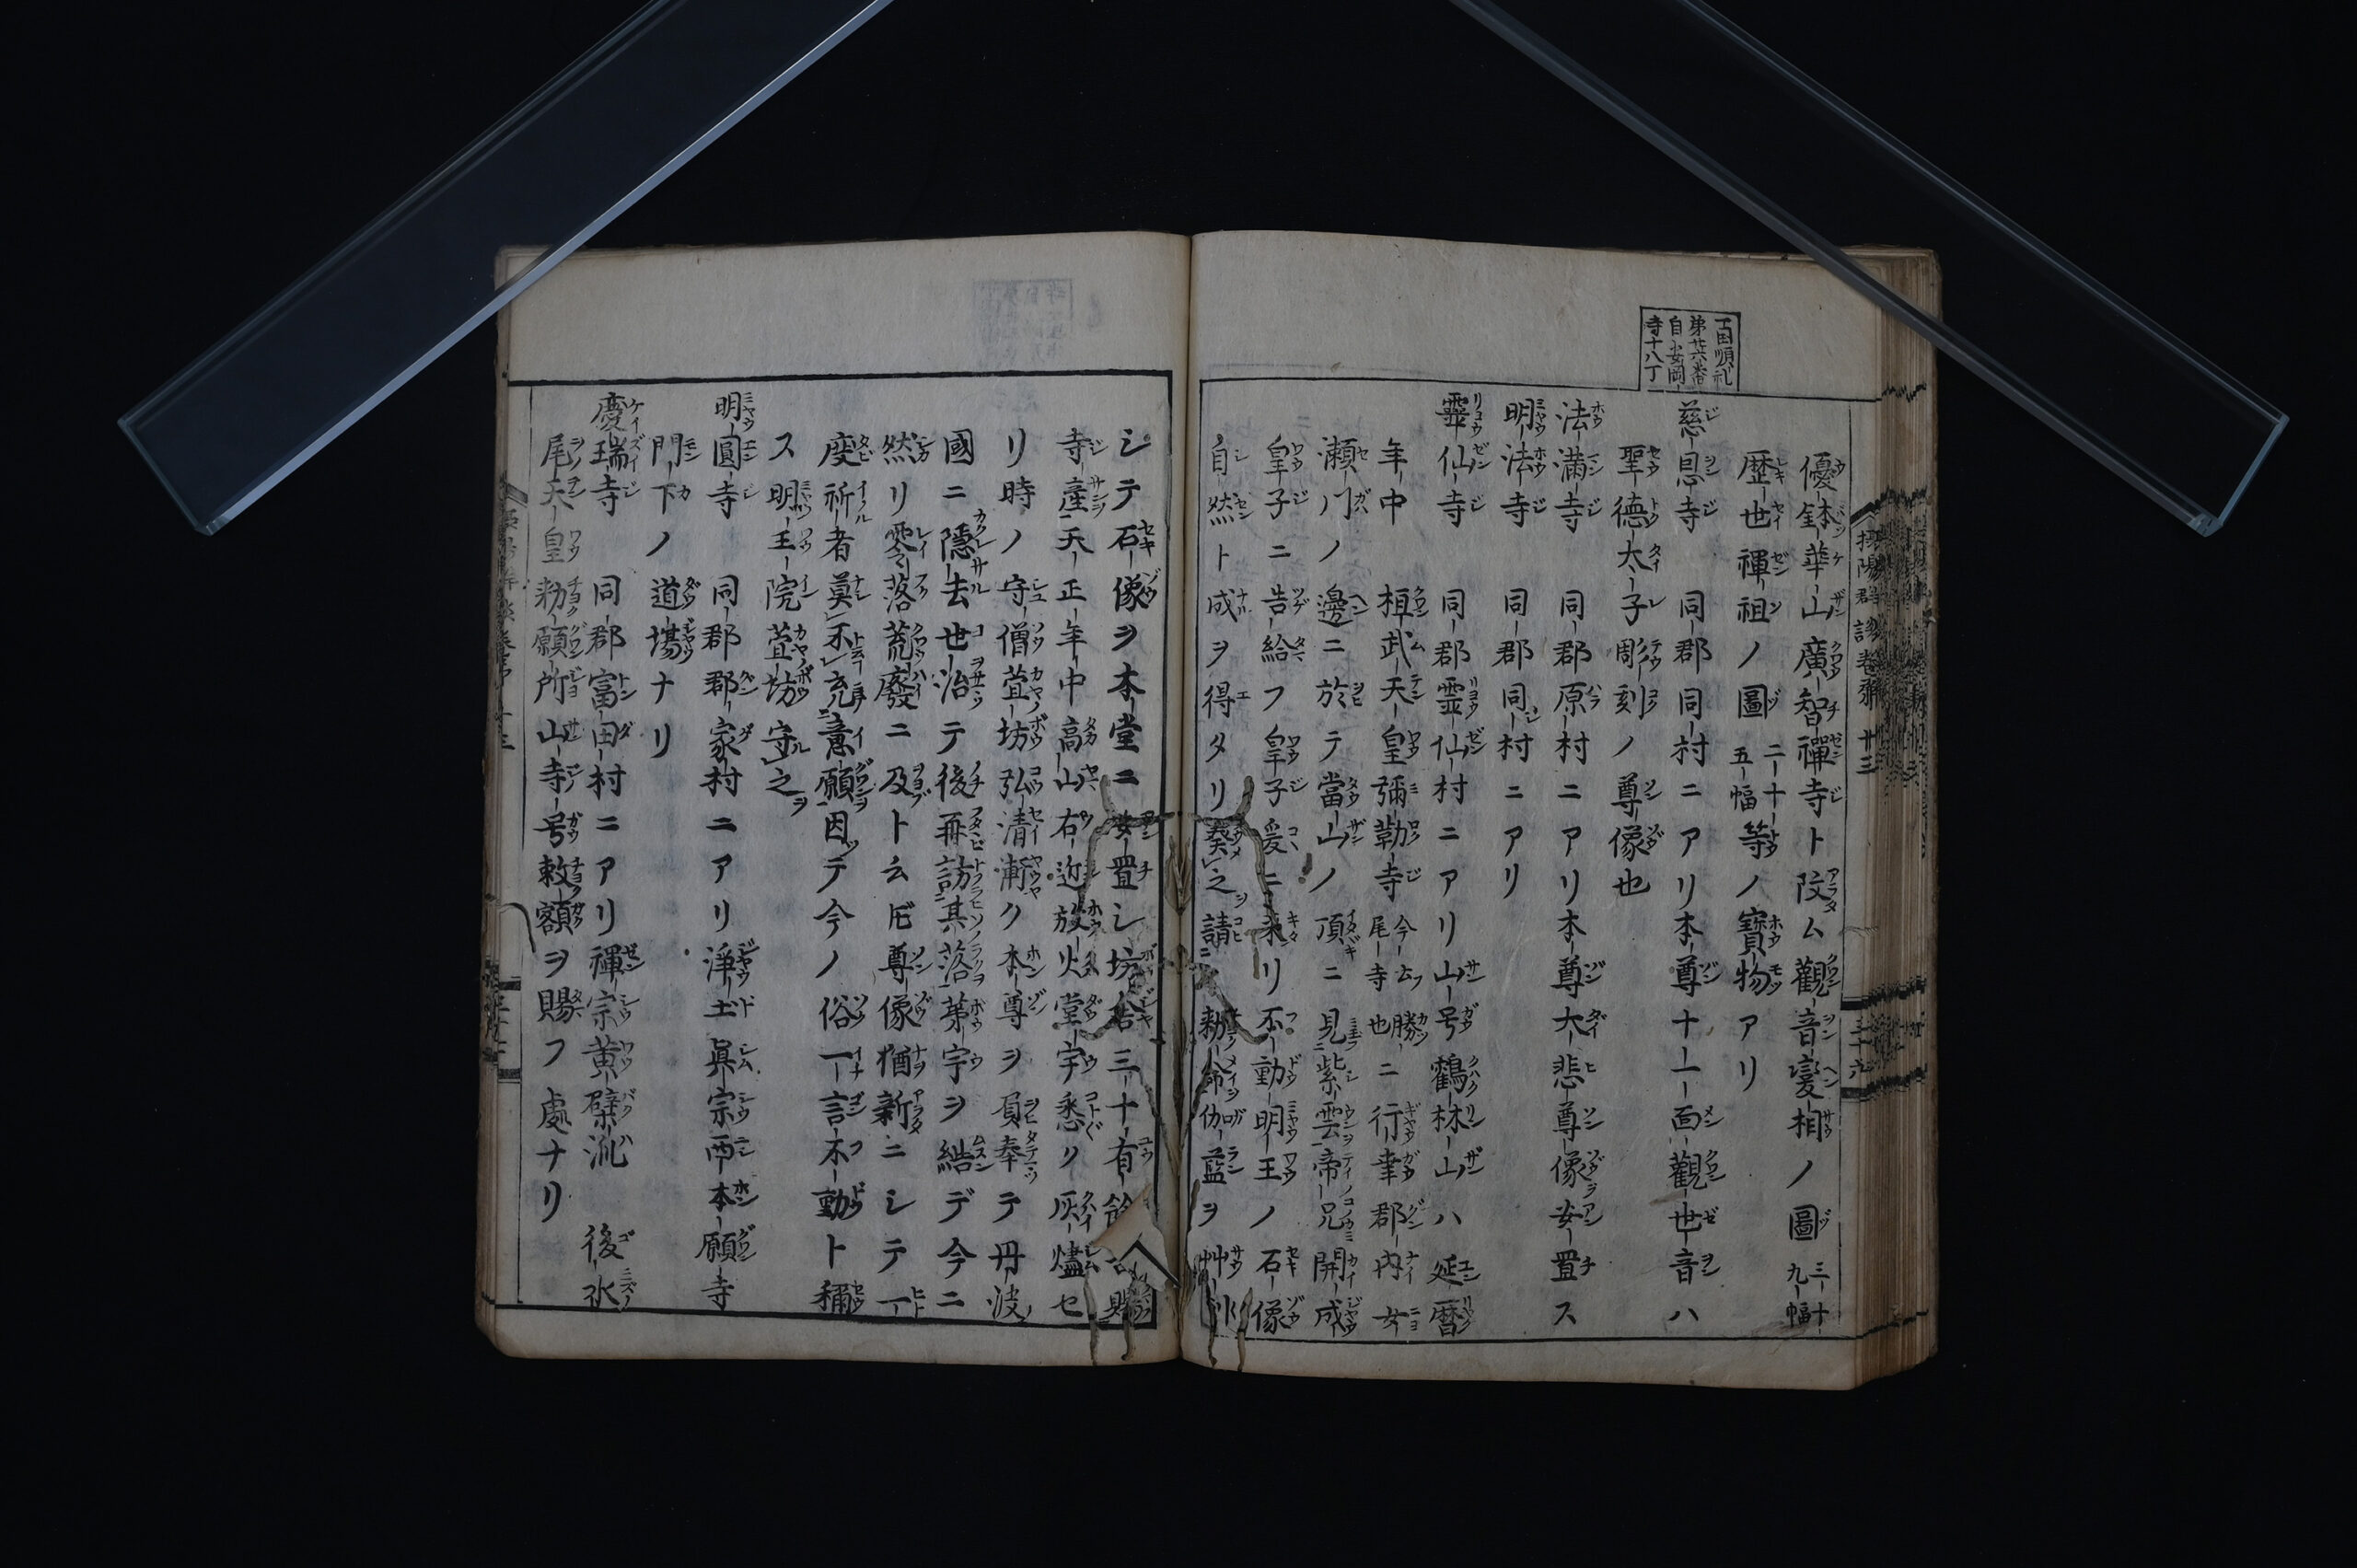 百国順礼
第廿六番
自安岡
寺十八丁
優鉢華山廣智禪寺ト改ム觀音變相ノ圖三十九幅
歴世禪祖ノ圖二十五幅等ノ寶物アリ
慈恩寺 同郡同村ニアリ本尊十一面觀世音ハ
聖徳太子彫刻ノ尊像也
法満寺 同郡原村ニアリ本尊大悲尊像安置ス
明法寺 同郡同村ニアリ
霊仙寺 同郡霊仙村ニアリ山号鶴林山ハ延暦
年中 桓武天皇彌勒寺今云勝尾寺也ニ行幸郡内女
瀬川ノ邊ニ於テ當山ノ頂ニ見紫雲帝兄開成
皇子ニ告給フ皇子爰ニ来リ不動明王ノ石像
自然ト成ヲ得タリ奏之請勅命伽藍ヲ艸創
シテ石像ヲ本堂ニ安置シ坊舎三十有餘
寺産天正年中高山右近放火堂宇悉ク灰燼セ
リ時ノ守僧萱坊弘清漸ク本尊ヲ負奉テ丹波
國ニ隱去世治テ後再訪其落茅宇ヲ結デ今ニ
然リ零落荒廢ニ及ト云𪜈尊像猶新ニシテ一
度祈者莫不充意願因テ今ノ俗一言不動ト稱
ス明王院萱坊守之
明圓寺 同郡郡家村ニアリ淨土眞宗西本願寺
門下ノ道場ナリ
慶瑞寺 同郡富田村ニアリ禪宗黄檗派 後水
尾天皇勅願所山寺号敕額ヲ賜フ處ナリ